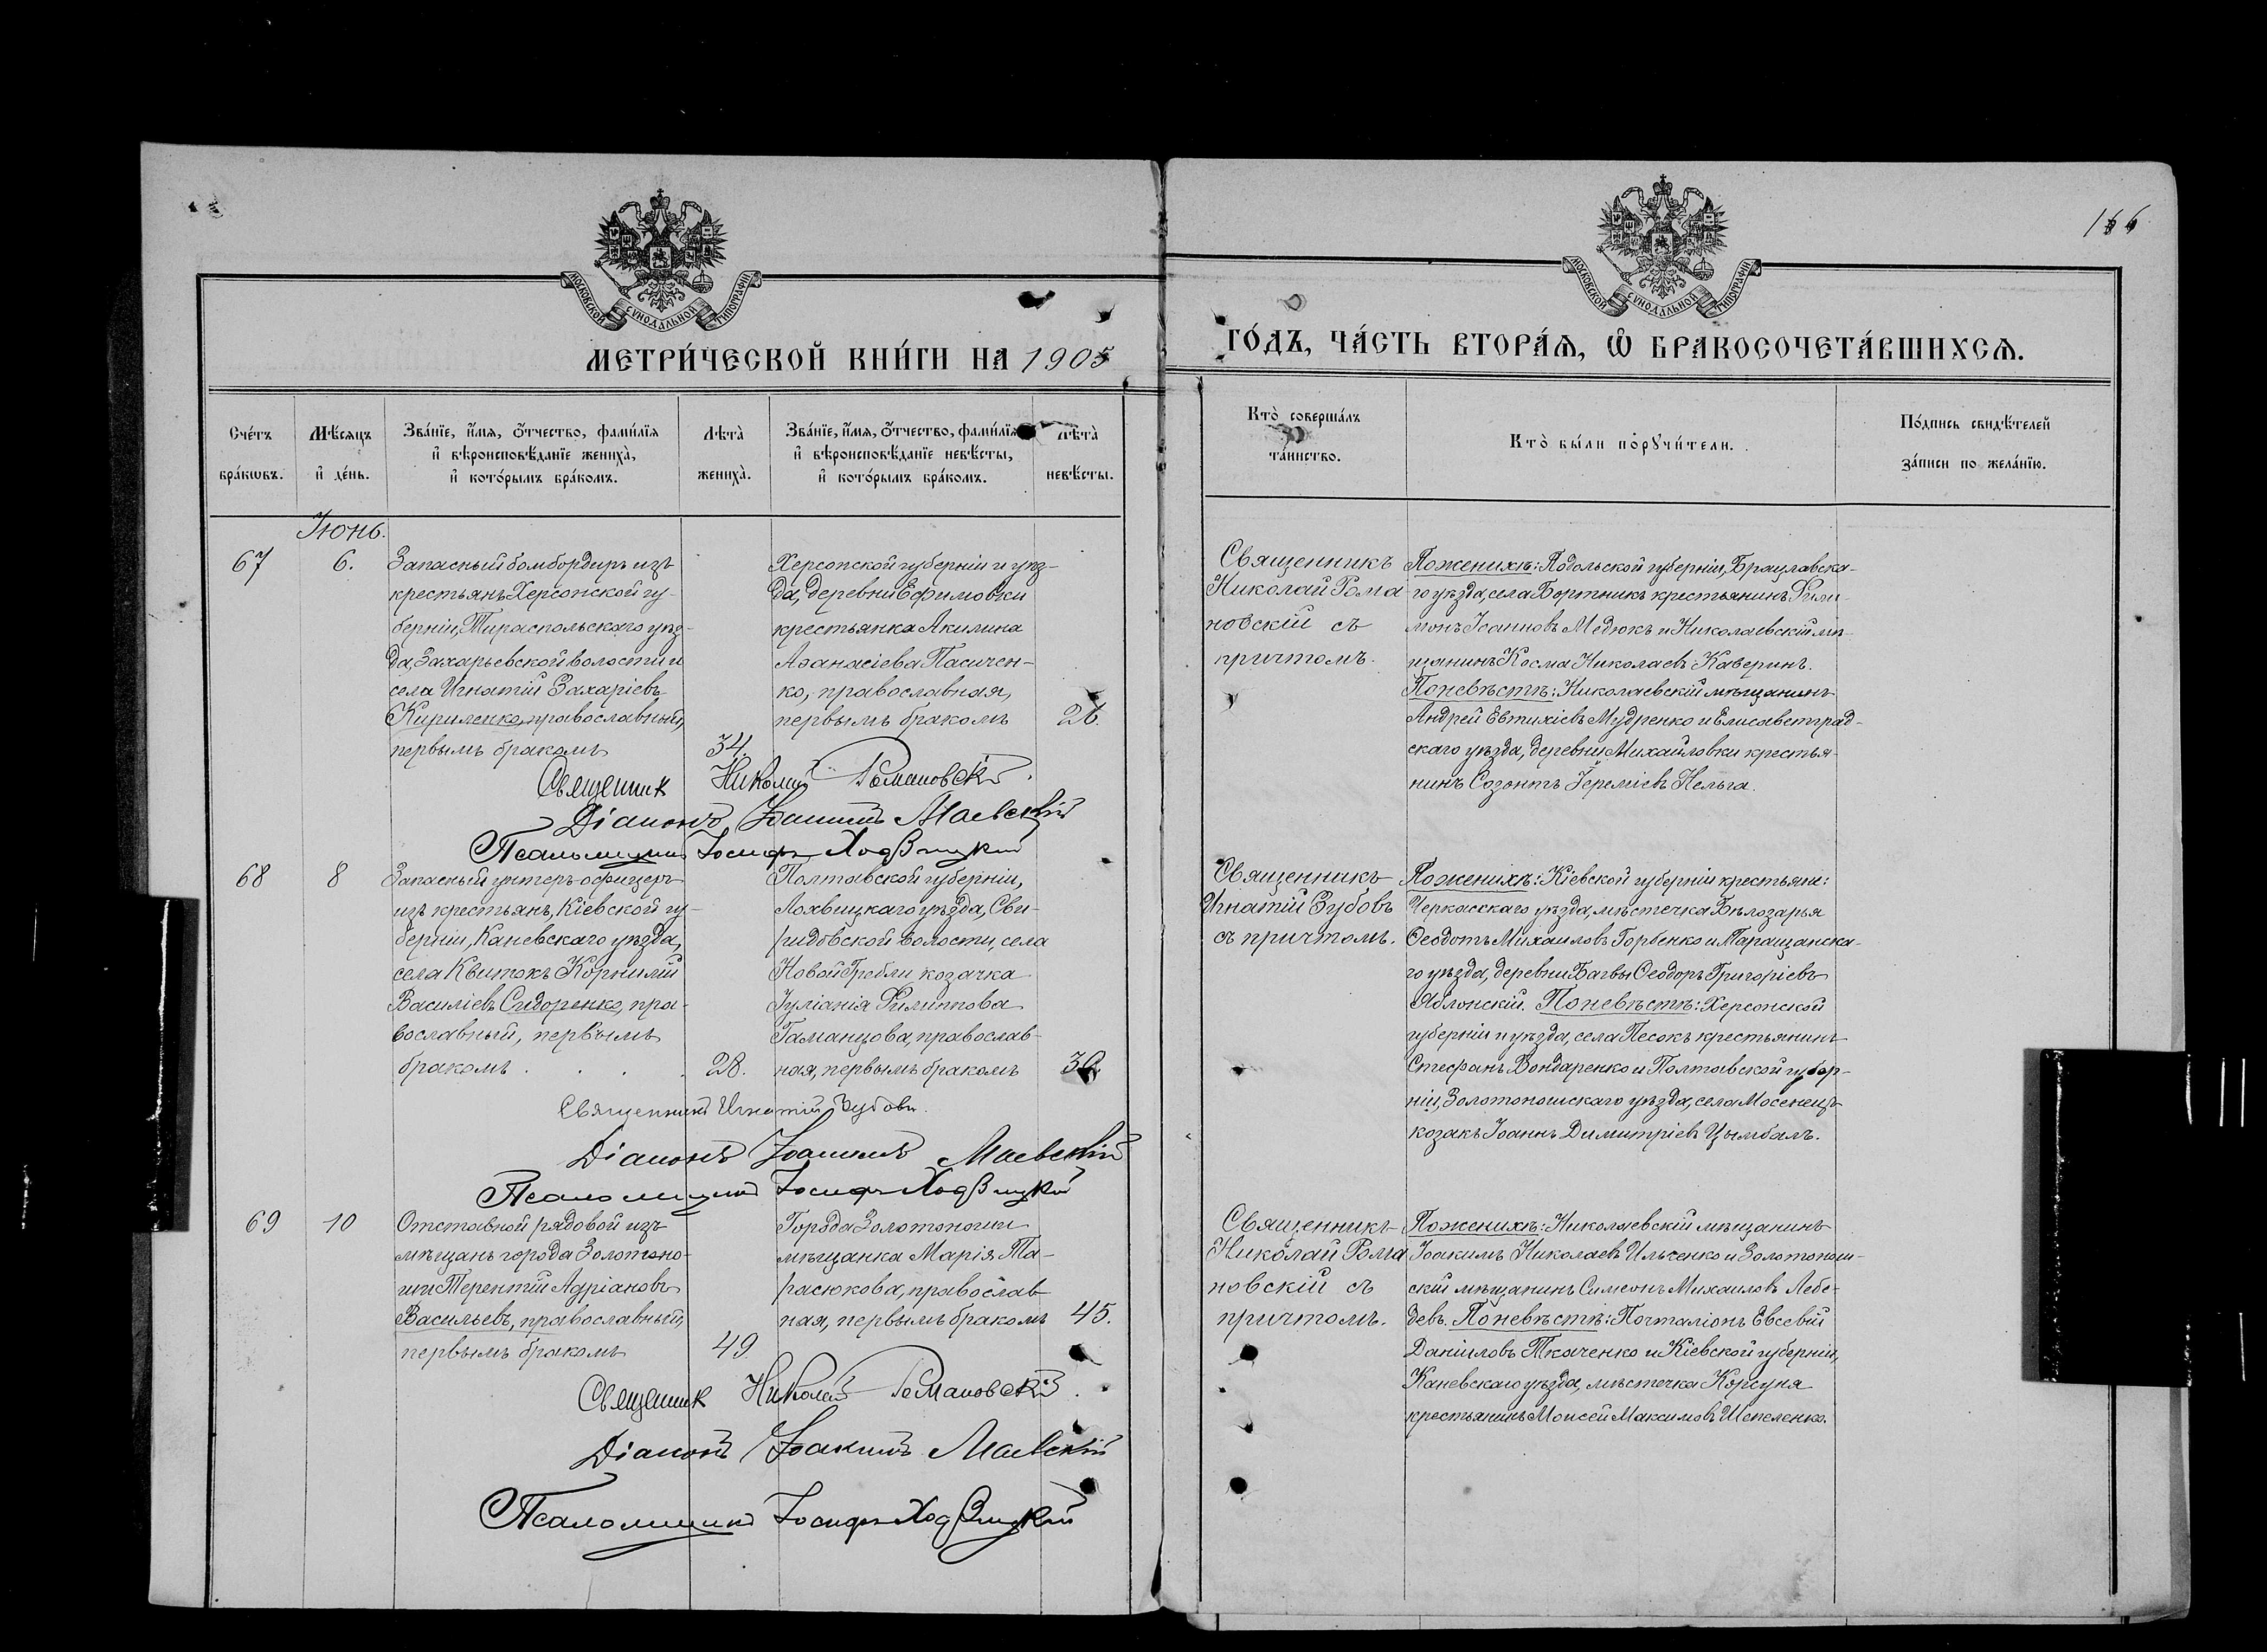 166
МОСКОВСКОЙ СѴНОДАЛЬНОЙ ТИПОГРАФІИ
МОСКОВСКОЙ СѴНОДАЛЬНОЙ ТИПОГРАФІИ
МЕТРИ́ЧЕСКОЙ КНИ́ГИ НА 1905
ГО́ДЪ, ЧА́СТЬ ВТОРА́Ѧ, Ѽ БРАКОСОЧЕТА́ВШИХСѦ.
Сче́тъ бра́кѡвъ.
Мѣ́сяцъ и҆ де́нь.
Зва́нїе, и҆́мя, ѻ҆́тчество, фами́лїя
и҆ вѣроисповѣ́данїе жениха̀,
и҆ кото́рымъ бра́комъ.
Лѣта̀ жениха̀.
Зва́нїе, и҆́мя, ѻ҆́тчество, фами́лїя
и҆ вѣроисповѣ́данїе невѣ́сты,
и҆ кото́рымъ бра́комъ.
Лѣта̀ невѣ́сты.
Кто̀ соверша́лъ
та́инство.
Кто̀ бы́ли порꙋчи́тели.
По́дпись свидѣ́телей
за́писи по жела́нїю.
Іюнь.
67
6.
Запасный бомбордиръ изъ
крестьянъ Херсонской гу-
берніи, Тираспольскаго уѣз-
да, Захарьевской волости и
села Игнатій Захаріевъ
Кириленко, православный,
первымъ бракомъ
34.
Херсонской губерніи и уѣз-
да, деревни Ефимовки
крестьянка Акилина
Аѳанасіева Пасичен-
ко, православная,
первымъ бракомъ
26.
Священникъ
Николай Рома
новскій съ
причтомъ.
По женихѣ: Подольской губерніи, Брацлавска-
го уѣзда, села Бортникъ крестьянинъ Фили-
монъ Іоанновъ Медюкъ и Николаевскій мѣ-
щанинъ Косма Николаевъ Каверинъ.
По невѣстѣ: Николаевскій мѣщанинъ
Андрей Евтихіевъ Мудренко и Елисаветград-
скаго уѣзда, деревни Михайловки крестья-
нинъ Созонтъ Іереміевъ Нельга.
Священник Николай Романовскій.
Діаконъ Іоакимъ Маевскій
Псаломщикъ Іосифъ Ходзицкій
68
8
Запасный унтеръ-офицеръ
изъ крестьянъ, Кіевской гу-
берніи, Каневскаго уѣзда,
села Квитокъ Корнилій
Василіевъ Сидоренко, пра-
вославный, первымъ
бракомъ . . . .
28.
Полтавской губерніи,
Лохвицкаго уѣзда, Сви-
ридовской волости, села
Новой Гребли козачка
Іуліанія Филиппова
Гаманцова, православ-
ная, первымъ бракомъ
30.
Священникъ
Игнатій Зубовъ
съ причтомъ.
По женихѣ: Кіевской губерніи крестьяне:
Черкасскаго уѣзда, мѣстечка Бѣлозарья
Ѳеодотъ Михаиловъ Горбенко и Таращанска-
го уѣзда, деревни Багвы Ѳеодоръ Григоріевъ
Яблонскій. По невѣстѣ: Херсонской
губерніи и уѣзда, села Песокъ крестьянинъ
Стефанъ Бондаренко и Полтавской губер-
ніи, Золотоношскаго уѣзда, села Мосенецъ
козакъ Іоаннъ Димитріевъ Цымбалъ.
Священникъ Игнатій Зубовъ.
Діаконъ Іоакимъ Маевскій
Псаломщикъ Іосифъ Ходзицкій
69
10
Отставной рядовой изъ
мѣщанъ города Золотоно-
ши Терентій Адріановъ
Васильевъ, православный,
первымъ бракомъ
49
Города Золотоноши
мѣщанка Марія Та-
расюкова, православ
ная, первымъ бракомъ
45.
Священникъ
Николай Рома
новскій съ
причтомъ.
По женихѣ: Николаевскій мѣщанинъ
Іоакимъ Николаевъ Ильченко и Золотонош-
скій мѣщанинъ Симеонъ Михаиловъ Лебе-
девъ. По невѣстѣ: Почталіонъ Евсевій
Даніиловъ Ткаченко и Кіевской губерніи,
Каневскаго уѣзда, мѣстечка Корсуня
крестьянинъ Моисей Максимовъ Шепеленко.
Священник Николай Романовскій.
Діаконъ Іоакимъ Маевскій
Псаломщикъ Іосифъ Ходзицкій